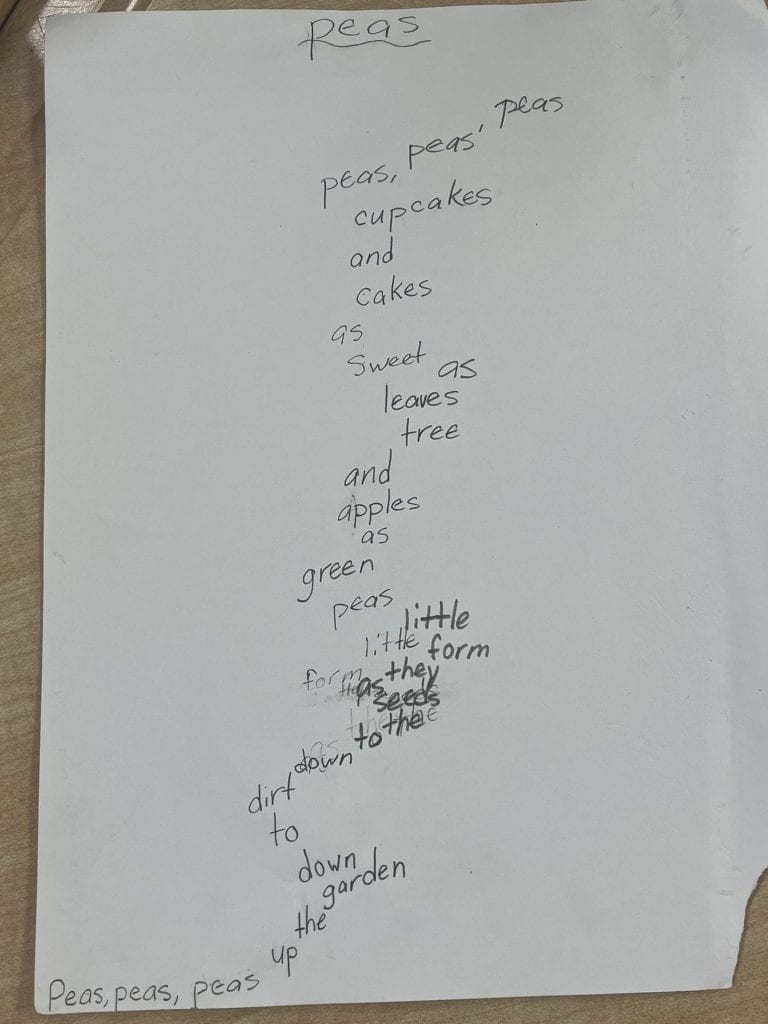 peas
peas, peas, peas
cupcakes
and
cakes
as
sweet as
leaves
tree
and
apples
as
green
peas
little
little form
form
as they
seeds
to the
down
dirt
to
down
garden
the
up
Peas, peas, peas